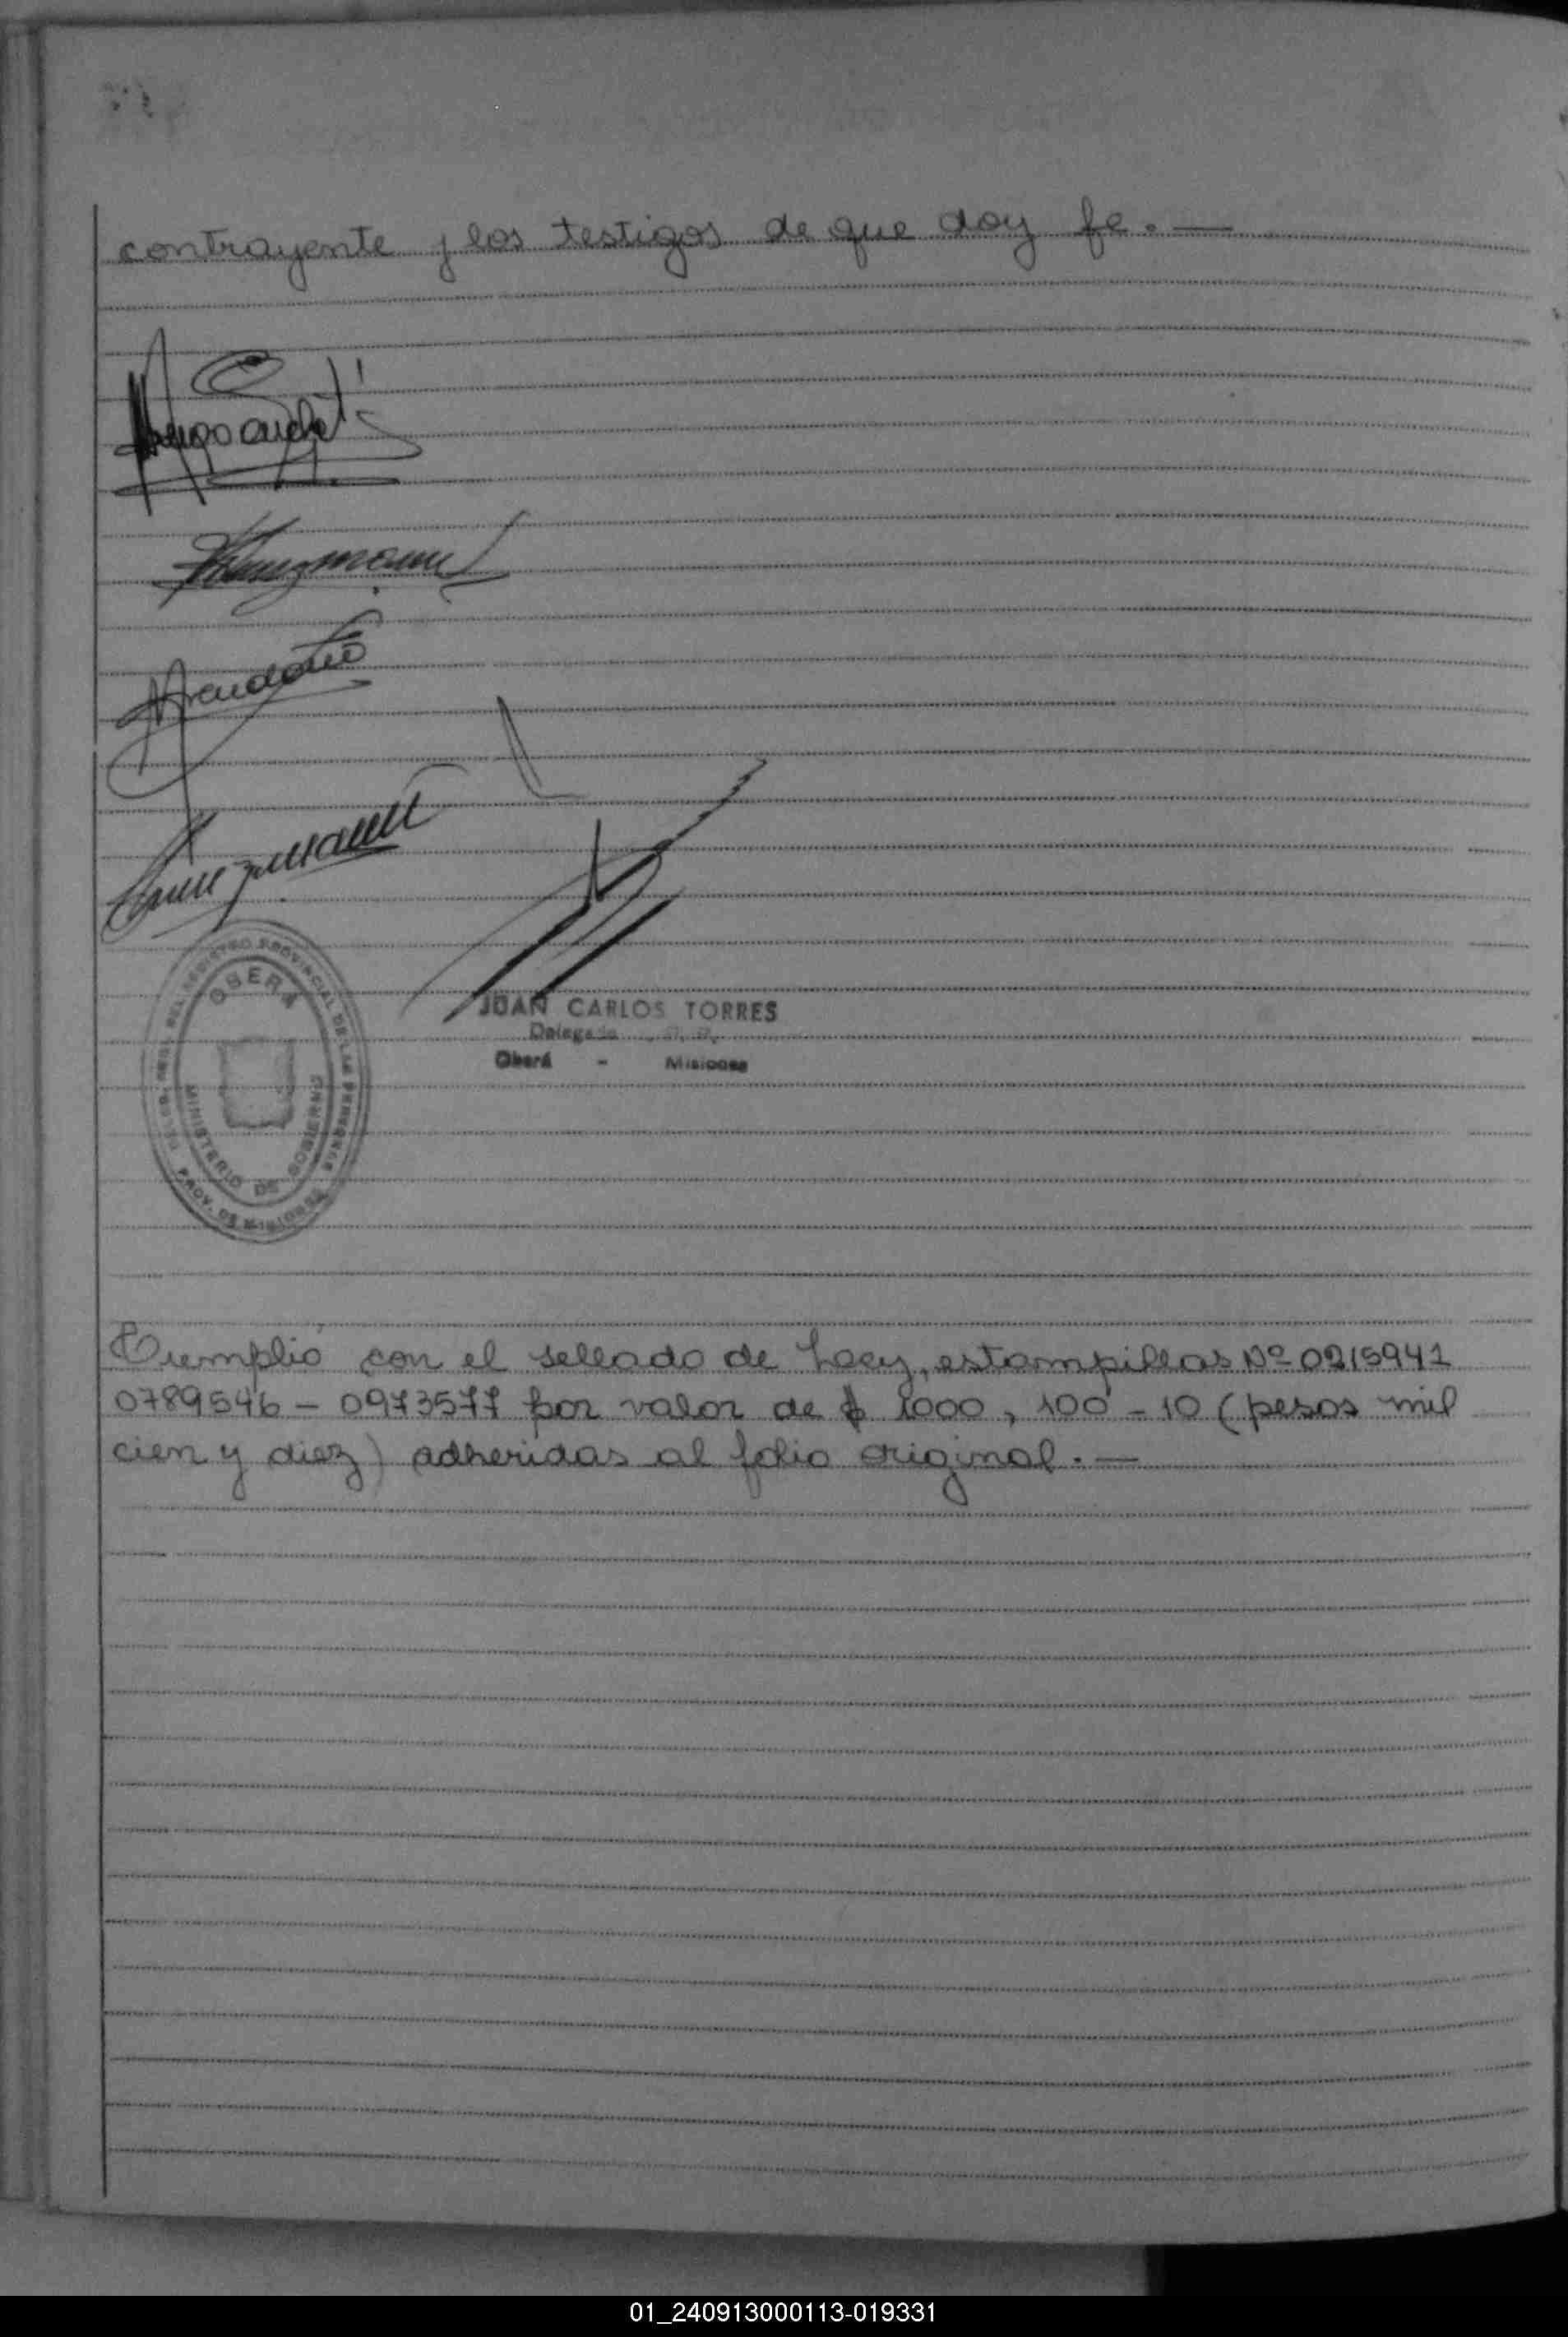 contrayente y los testigos de que doy fe. —
JUAN CARLOS TORRES
Delegado
Oberá - Misiones
REGISTRO PROVINCIAL DE LAS PERSONAS
OBERÁ
MINISTERIO DE GOBIERNO
PROV. DE MISIONES
Cumplió con el sellado de Ley, estampillas Nº 0215941
0789546 - 0973577 por valor de $ 1000, 100 - 10 (pesos mil
cien y diez) adheridas al folio original. —
01_240913000113-019331